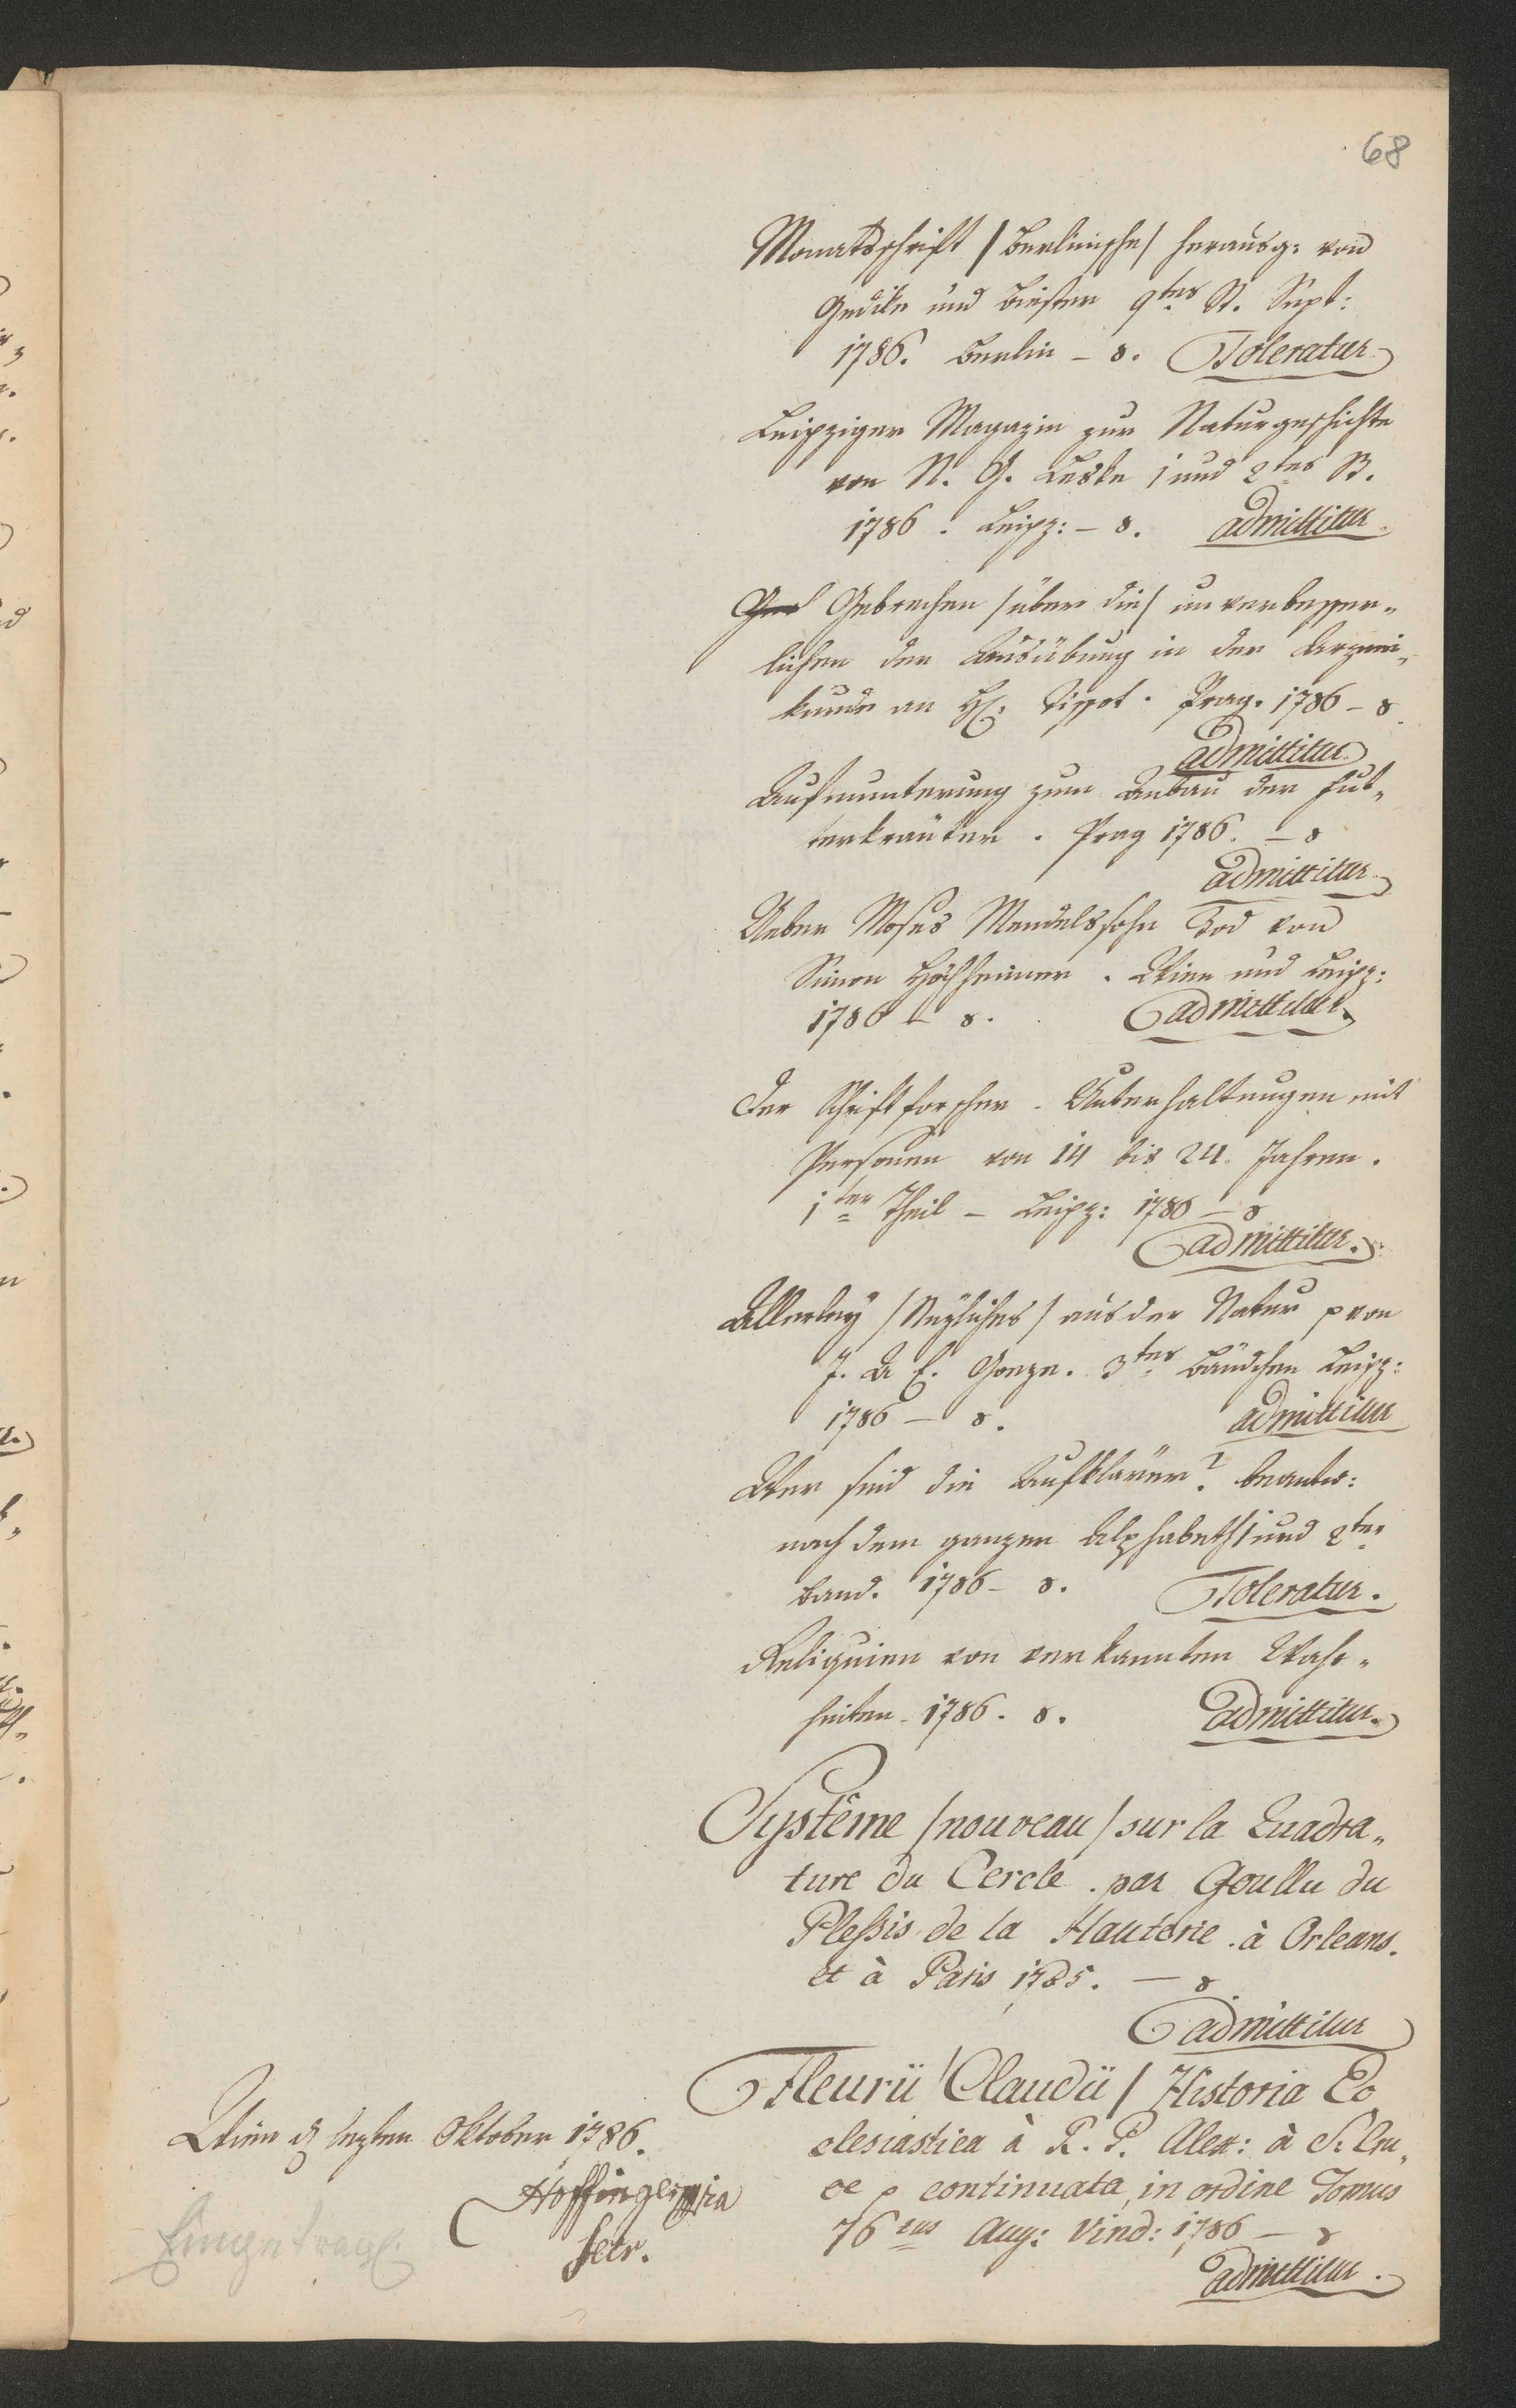 68
Monatsschrift /Berlinische/ herausg: von
Gedike und Biester 9tes St. Sept:
1786. Berlin – 8. Toleratur
Leipziger Magazin zur Naturgeschichte
von N. G. Leske 1 und 2tes St.
1786. Leipz: – 8. admittitur.
Gebrechen /über die/ unverbesser„
lichen der Ausübung in der Arznei„
kunde an H: Tissot. Prag. 1786 – 8.
admittitur
Aufmunterung zum Anbau der Fut„
terkräuter. Prag 1786. – 8
admittitur
Ueber Moses Mendelssohn Tod von
Simon Höchheimer. Wien und Leipz:
1786 – 8. admittitur.
Der Schriftforscher. Unterhaltungen mit
Personen von 14 bis 24. Jahren.
1ter Theil – Leipz: 1786 – 8
admittitur.
Allerley /Nüzliches/ aus der Natur p von
J. A E. Goeze. 3tes Bändchen Leipz:
1786 – 8. admittitur
Wer sind die Aufklärer? beantw:
nach dem ganzen Alphabeth 1 und 2ter
Band. 1786 – 8. Toleratur.
Reliquien von verkannten Wahr„
heiten. 1786. 8. admittitur.
Systême /nouveau/ sur la Quadra„
ture du Cercle. par Goullu du
Plessis de la Hauterie. à Orleans.
et à Paris 1785. – 8
admittitur
Fleurii /Claudii/ Historia Ec
clesiastica à R. P. Alex: à S: Cru„
ce p continuata, in ordine Tomus
76tus Aug: Vind: 1786 – 8
admittitur.
Wien d lezten Oktober 1786.
Hoffinger mpria
Secr.